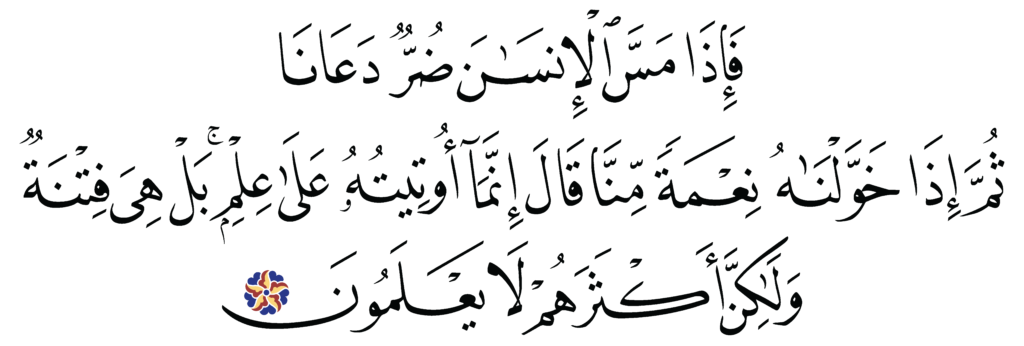 فَإِذَا مَسَّ ٱلْإِنسَـٰنَ ضُرٌّ دَعَانَا
ثُمَّ إِذَا خَوَّلْنَـٰهُ نِعْمَةً مِّنَّا قَالَ إِنَّمَآ أُوتِيتُهُۥ عَلَىٰ عِلْمٍۭ ۚ بَلْ هِىَ فِتْنَةٌ
وَلَـٰكِنَّ أَكْثَرَهُمْ لَا يَعْلَمُونَ